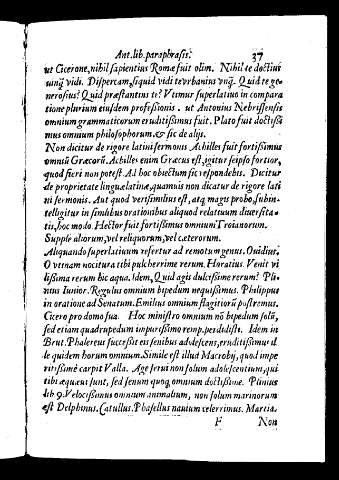 Ant. lib. paraphrasis. 37
ut Cicerone, nihil sapientius Romæ fuit olim. Nihil te doctius
unq̃ vidi. Dispeream, siquid vidi te vrbanius vnq̃. Quid te ge-
nerosius? Quid præstantius te? Vtimur superlatiuo in compara
tione plurium eiusdem professionis. ut Antonius Nebrissensis
omnium grammaticorum eruditissimus fuit. Plato fuit doctissi
mus omnium philosophorum. & sic de alijs.
Non dicitur de rigore latini sermonis Achilles fuit fortissimus
omniũ Græcorũ. Achilles enim Græcus est, igitur seipso fortior,
quod fieri non potest. Ad hoc obiectum sic respondebis. Dicitur
de proprietate linguæ latinæ, quamuis non dicatur de rigore lati
ni sermonis. Aut quod verisimilius est, atq; magis probo, subin-
telligitur in similibus orationibus aliquod relatiuum diuersita-
tis, hoc modo. Hector fuit fortissimus omnium Troianorum.
Supple aliorum, vel reliquorum, vel cæterorum.
Aliquando superlatiuum refertur ad remotum genus. Ouidius.
O vtinam nocitura tibi pulcherrime rerum. Horatius. Venit vi
lissima rerum hic aqua. Idem, Quid agis dulcissime rerum? Pli-
nius Iunior. Regulus omnium bipedum nequissimus. Philippus
in oratione ad Senatum. Emilius omnium flagitiorũ postremus.
Cicero pro domo sua. Hoc ministro omnium nõ bipedum solũ,
sed etiam quadrupedum impurissimo remp. perdidisti. Idem in
Brut. Phalereus successit eis senibus adolescens, eruditissimus il
le quidem horum omnium. Simile est illud Macrobij, quod impe
ritissimè carpit Valla. Age serui non solum adolescentium, qui
tibi æquæui sunt, sed senum quoq, omnium doctissime. Plinius
lib. 9. Velocissimus omnium animalium, non solum marinorum
est Delphinus. Catullus. Phasellus nauium celerrimus. Martia.
F Non